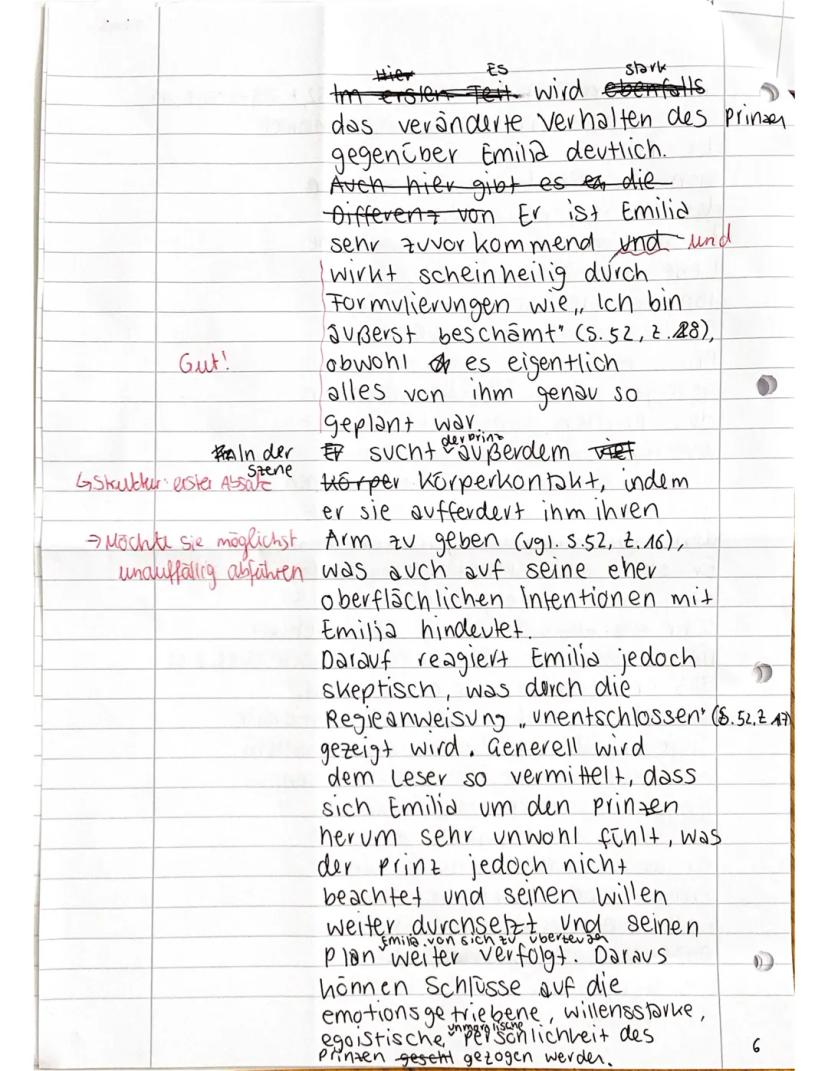 Hier Es stark
Im ersten Teil wird ebenfalls
das veränderte Verhalten des Prinzen
gegenüber Emilia deutlich.
Auch hier gibt es die
Differenz von Er ist Emilia
sehr zuvorkommend und und
wirkt scheinheilig durch
Formulierungen wie „Ich bin
äußerst beschämt" (S. 52, Z. 28),
Gut! obwohl es eigentlich
alles von ihm genau so
geplant war.
In der Szene Er sucht der Prinz außerdem viel
↳Struktur: erster Absatz körper Körperkontakt, indem
er sie auffordert ihm ihren
→ Möchte sie möglichst Arm zu geben (vgl. S. 52, Z. 16),
unauffällig abführen was auch auf seine eher
oberflächlichen Intentionen mit
Emilia hindeutet.
Darauf reagiert Emilia jedoch
skeptisch, was durch die
Regieanweisung „unentschlossen" (S. 52, Z 17)
gezeigt wird. Generell wird
dem Leser so vermittelt, dass
sich Emilia um den Prinzen
herum sehr unwohl fühlt, was
der Prinz jedoch nicht
beachtet und seinen Willen
weiter durchsetzt und seinen
Plan Emilia von sich zu überzeugen weiter verfolgt. Daraus
können Schlüsse auf die
emotionsgetriebene, willensstarke,
egoistische, unmoralische Persönlichkeit des
Prinzen gezogen werden.
6